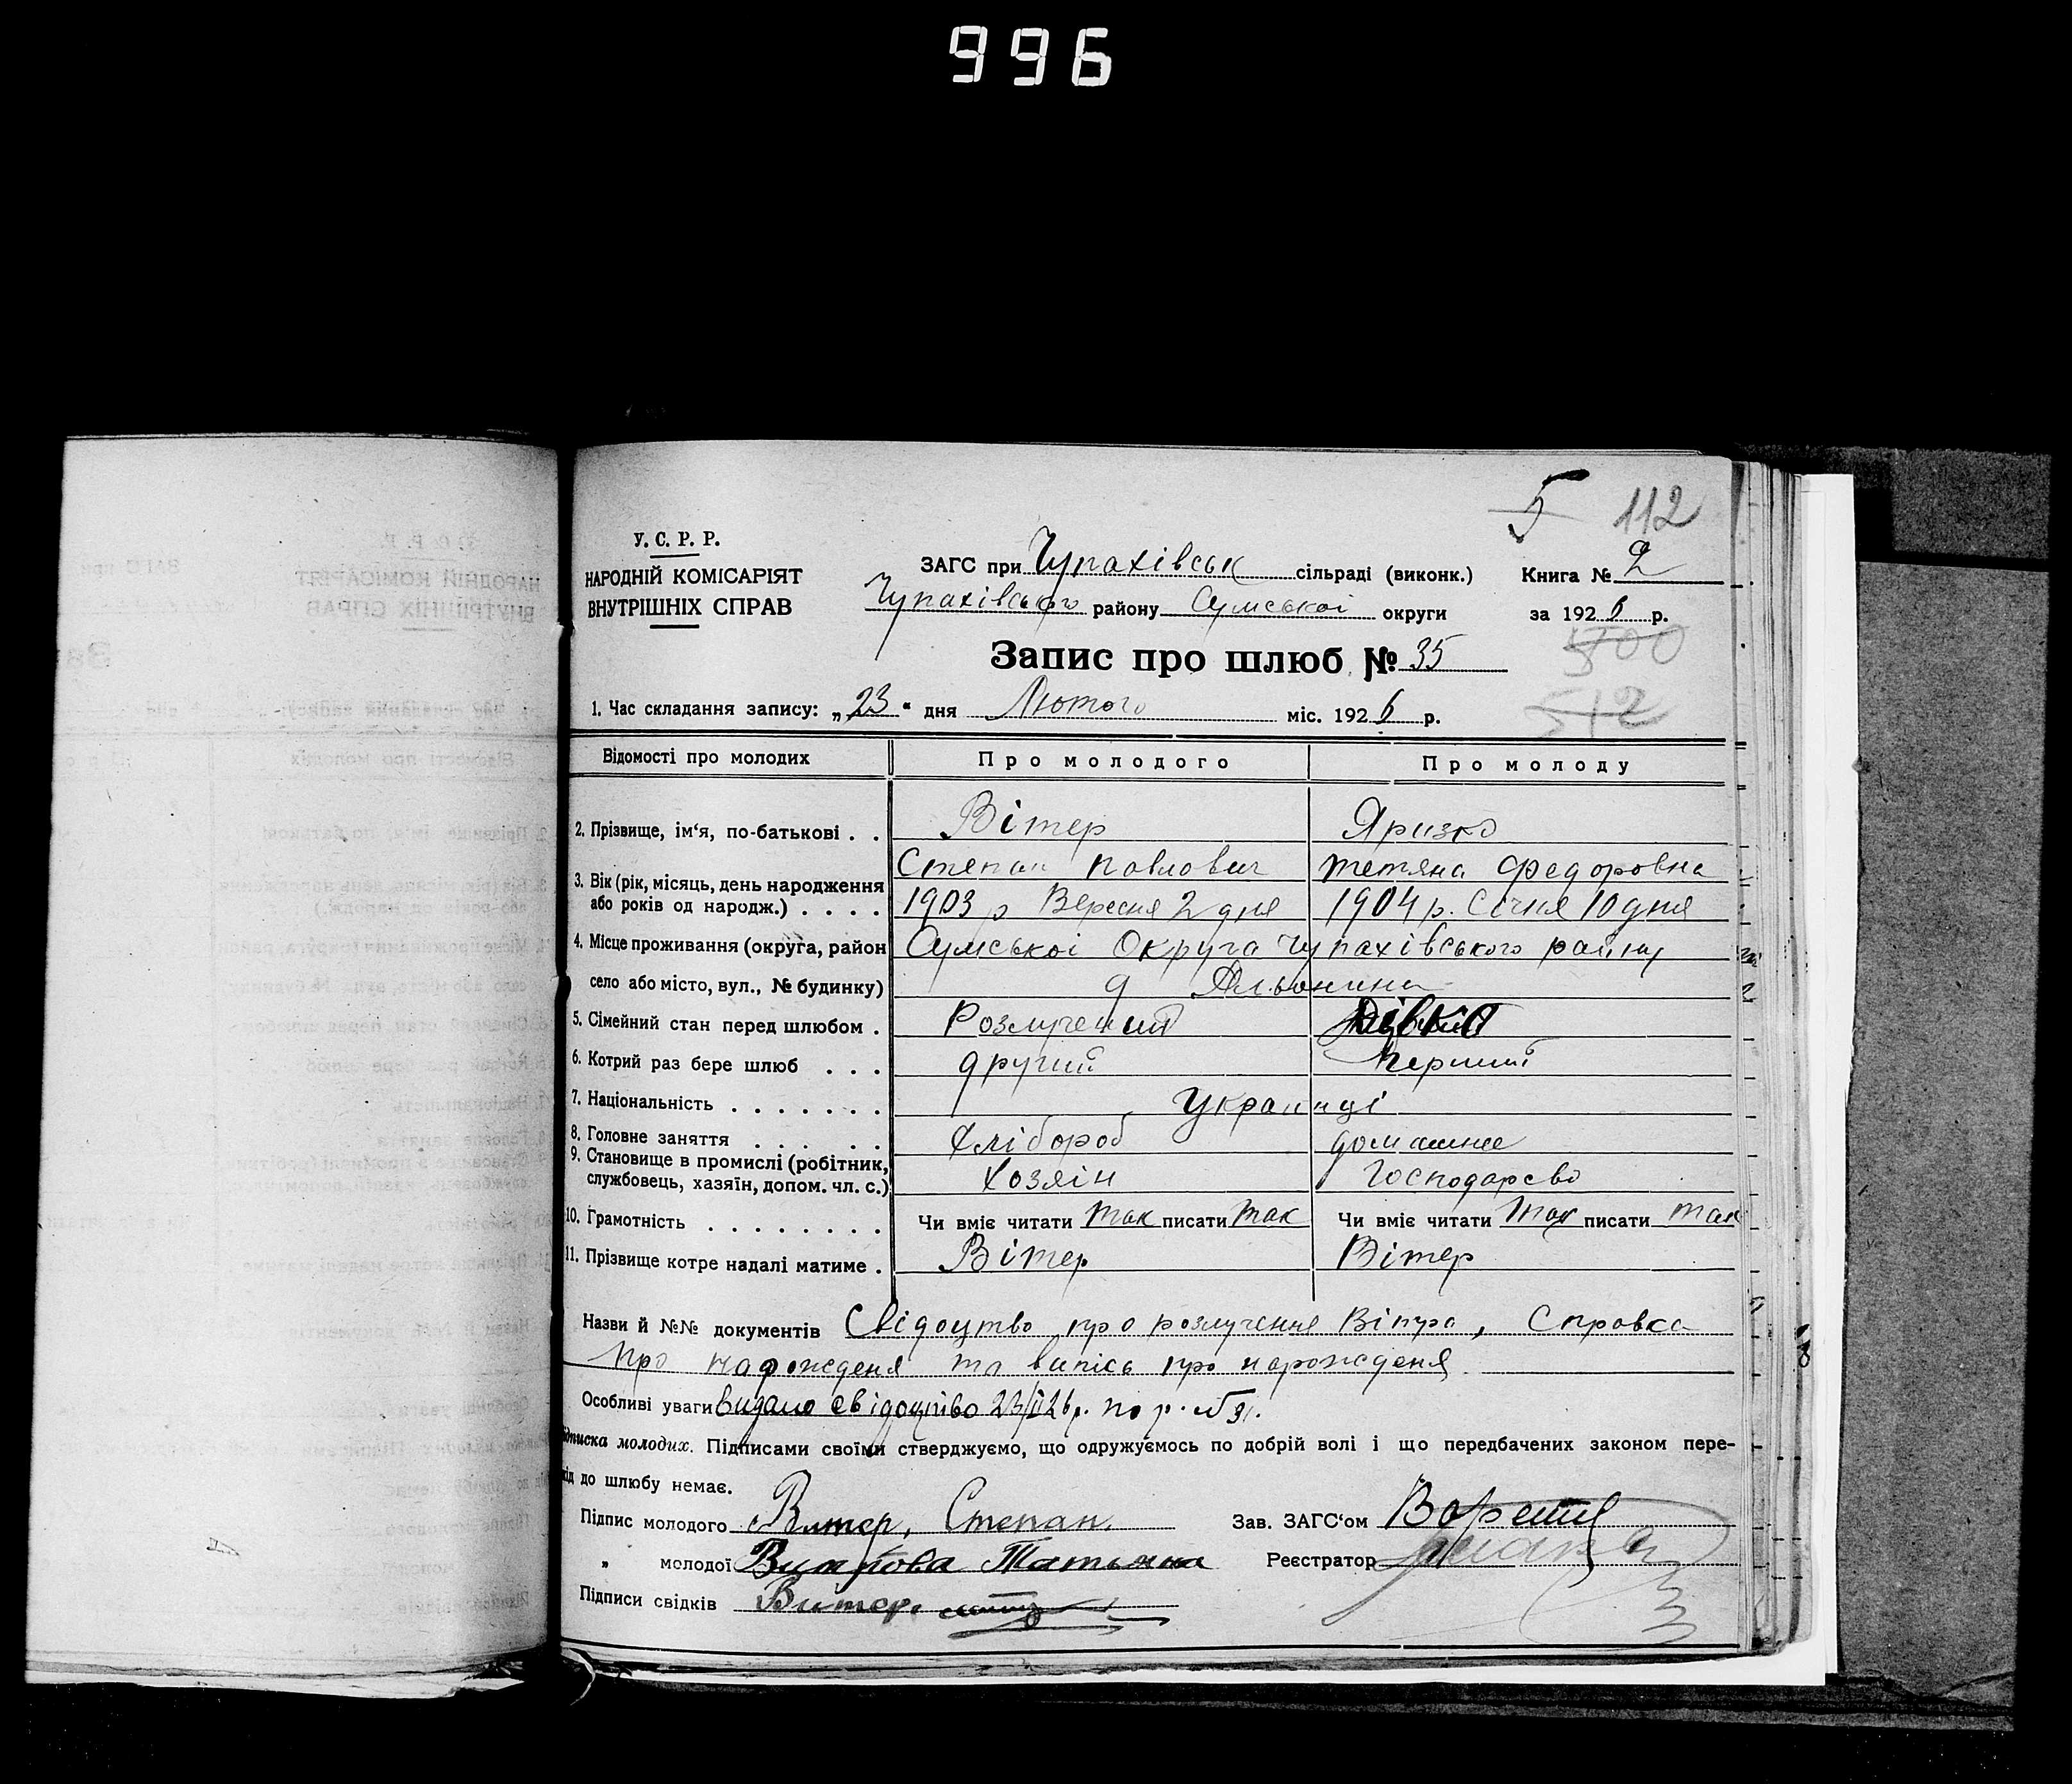 996
5 112
У. С. Р. Р.
НАРОДНІЙ КОМІСАРІЯТ
ВНУТРІШНІХ СПРАВ
ЗАГС при Чупахівськ сільраді (виконк.) Книга № 2
Чупахівського району Сумської округи за 1926 р.
5700
512
Запис про шлюб № 35
1. Час складання запису: „23“ дня Лютого міс. 1926 р.
Відомості про молодих Про молодого Про молоду
2. Прізвище, ім‘я, по-батькові . . Вітер Яризко
Степан Павлович Тетяна Федоровна
3. Вік (рік, місяць, день народження або років од народж.) . . . . 1903 р Вересня 2 дня 1904 р. Січня 10 дня
4. Місце проживання (округа, район Сумської Округа Чупахівського району
село або місто, вул., № будинку)
5. Сімейний стан перед шлюбом . Розлучений Дівка
6. Котрий раз бере шлюб . . . другий перший
7. Національність . . . . . . . Украинці
8. Головне заняття . . . . . Хлібороб домашнє
9. Становище в промислі (робітник, службовець, хазяїн, допом. чл. с.) Хозяін Господарсво
10. Грамотність . . . . . . . . Чи вміє читати так писати так Чи вміє читати так писати так
11. Прізвище котре надалі матиме . Вітер Вітер
Назви й №№ документів Свідоцтво про розлучення Вітра, Справка
про народженя та випісь про народженя
Особливі уваги видано свідоцтво 23/II 26 р. по р. №31.
ідписка молодих. Підписами своїми стверджуємо, що одружуємось по добрій волі і що передбачених законом пере-
кід до шлюбу немає.
Підпис молодого Витер, Степан. Зав. ЗАГС‘ом
„ молодої Витрова Татьяна Реєстратор
Підписи свідків Витер.